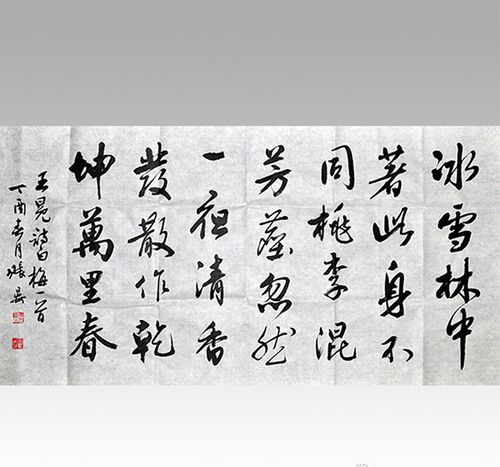 冰雪林中
著此身不
同桃李混
芳塵忽然
一夜清香
發散作乾
坤萬里春
王冕詩白梅一首
丁酉春月張